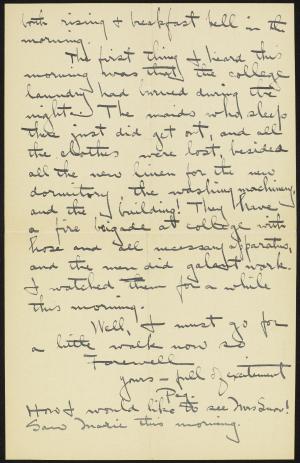 both rising & breakfast bell in the
morning.
The first thing I heard this
morning was that the college
laundry had burned during the
night. The maids who sleep
there just did get out, and all
the clothes were lost, besides
all the new linen for the new
dormitory, the washing machinery,
and the building! They have
a fire brigade at college with
hose and all necessary apparatus,
and the men did great work.
I watched them for a while
this morning.
Well, I must go for
a little walk now so
Farewell
yours – full of excitement
Peg.
How I would like to see Mrs Snow!
Saw Marie this morning.